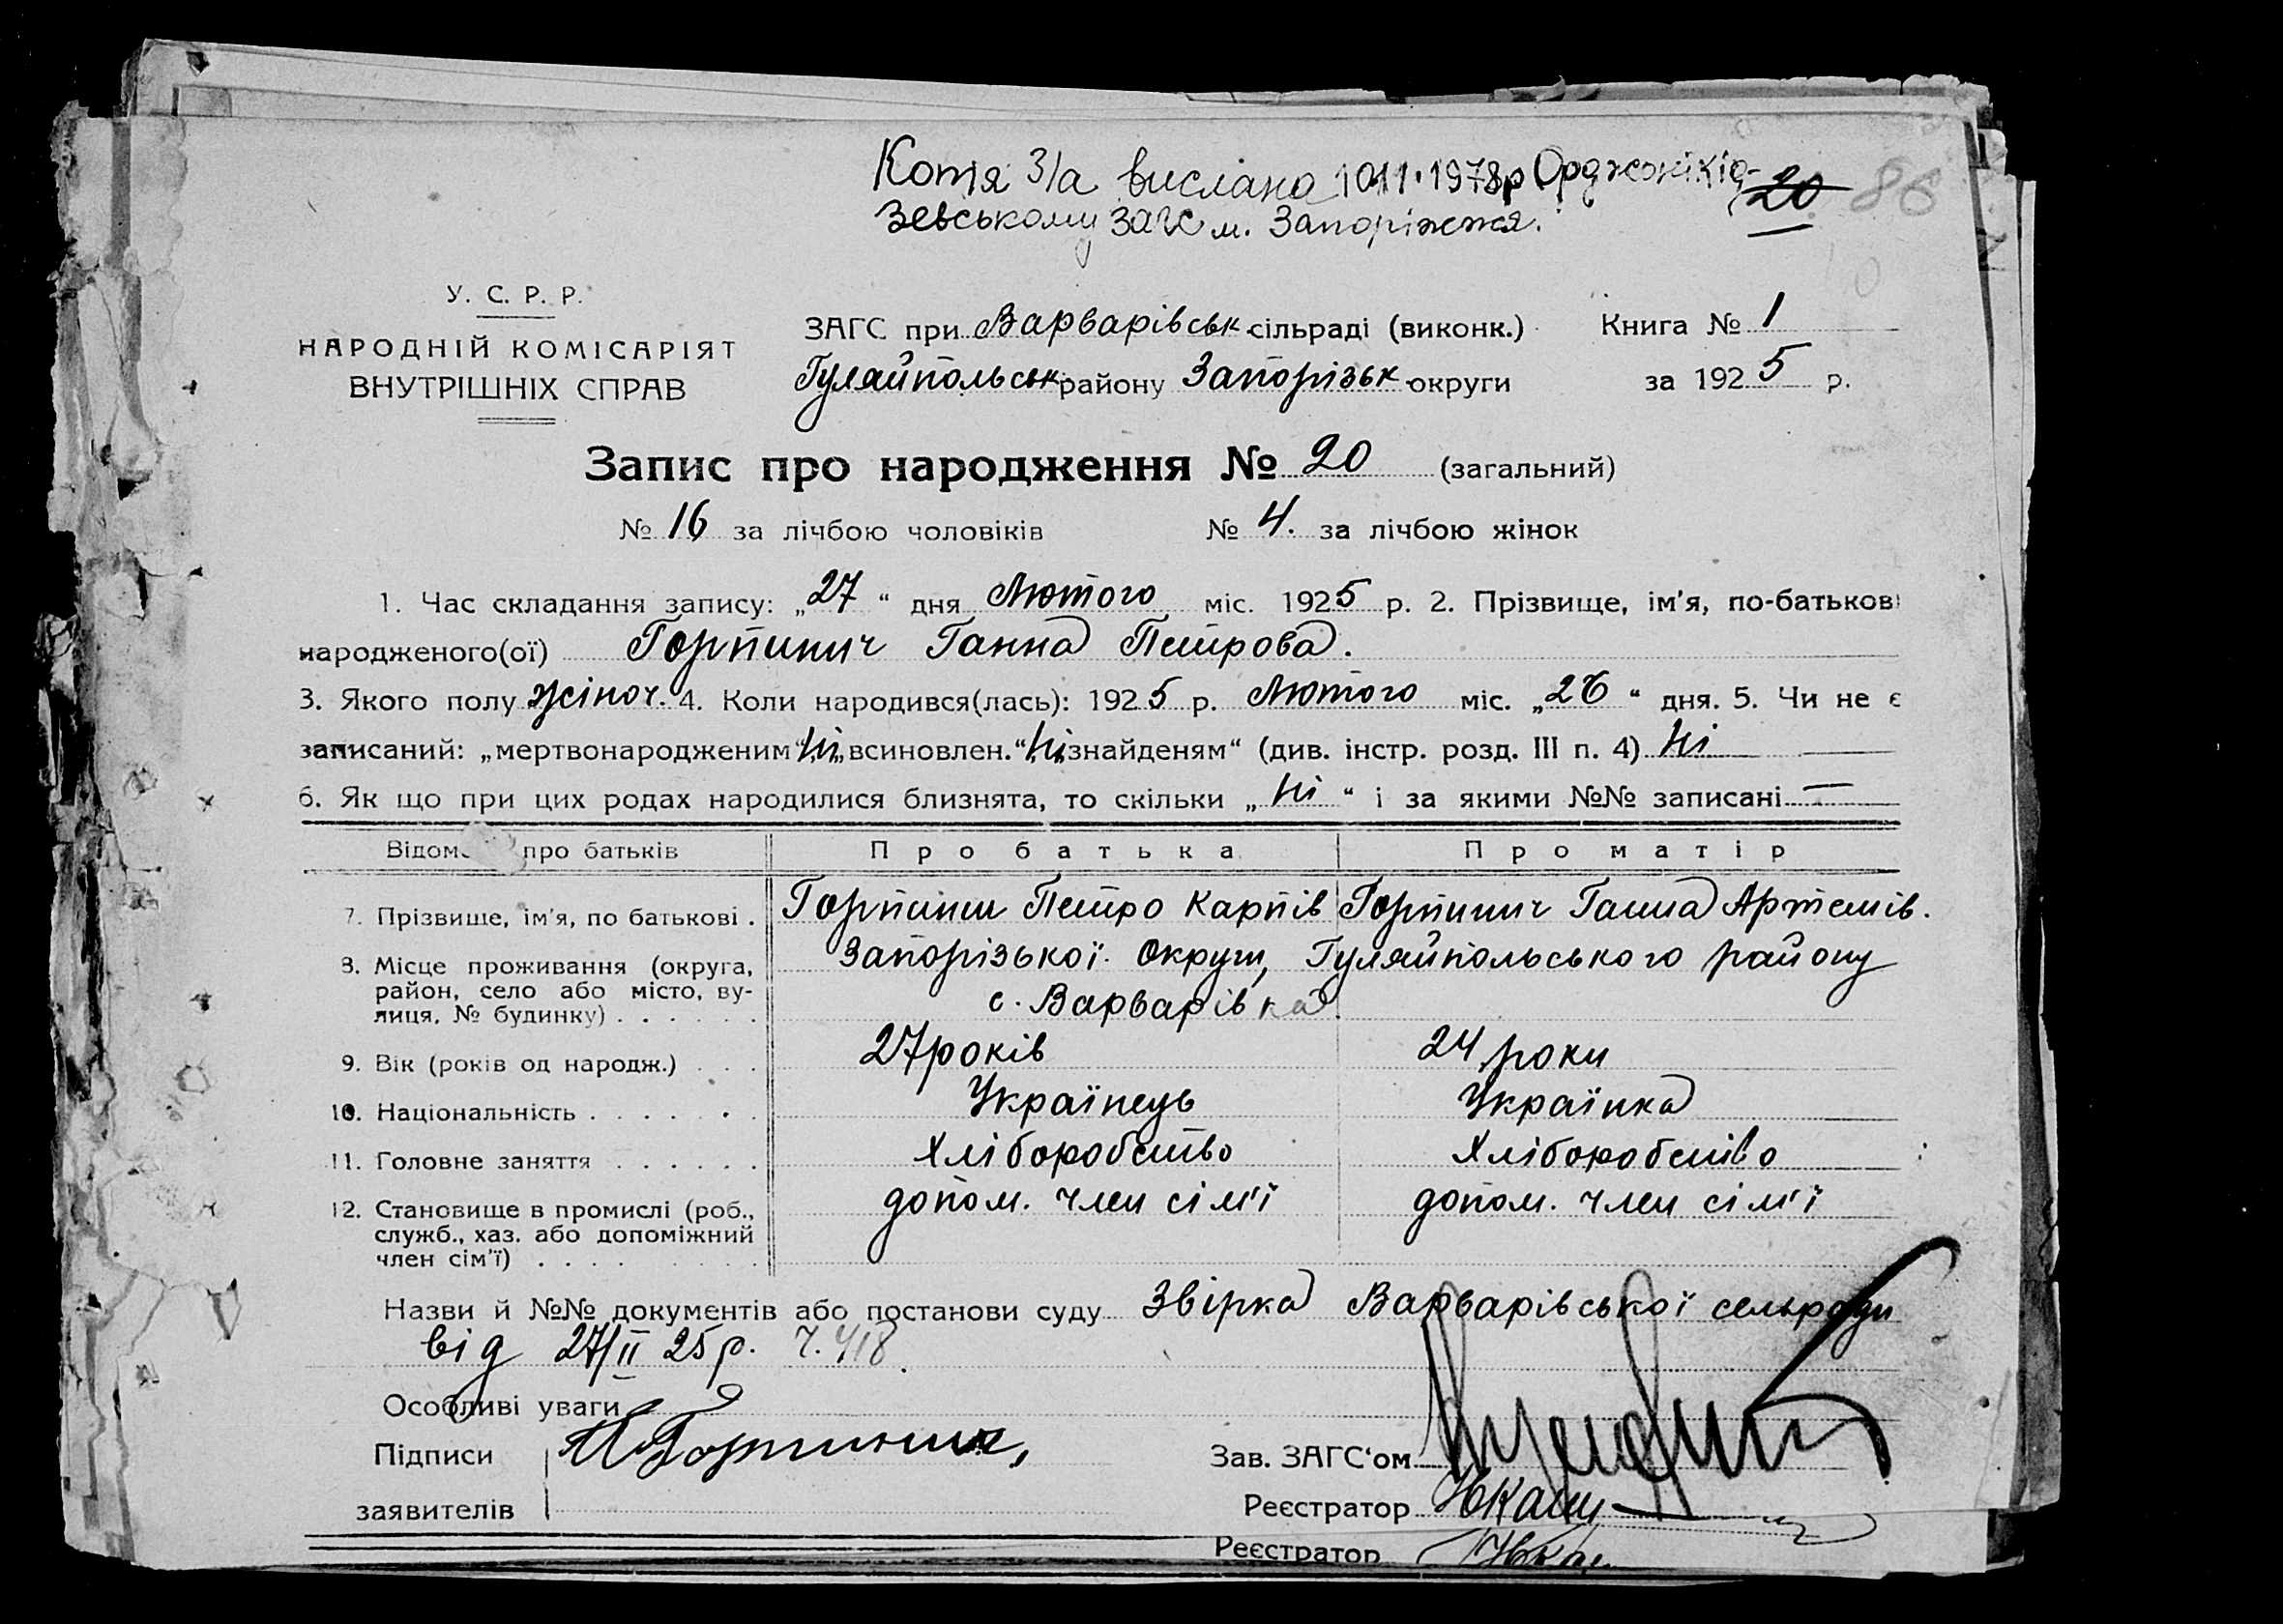 Копія З/а вислана 10.11.1978р Орджонікід-
зевському ЗАГС м. Запоріжжя.
20 86
У. С. Р. Р.
НАРОДНІЙ КОМІСАРІЯТ
ВНУТРІШНІХ СПРАВ
ЗАГС при Варварівськ сільраді (виконк.) Книга № 1
Гуляйпольськ району Запорізьк округи за 1925 р.
Запис про народження № 20 (загальний)
№ 16 за лічбою чоловіків № 4. за лічбою жінок
1. Час складання запису: „27“ дня Лютого міс. 1925 р. 2. Прізвище, ім'я, по-батькові
народженого(ої) Горпинич Ганна Петрова.
3. Якого полу жіноч. 4. Коли народився(лась): 1925 р. Лютого міс. „26“ дня. 5. Чи не є
записаний: „мертвонародженим“ Ні „всиновлен.“ Ні „знайденям“ (див. інстр. розд. III п. 4) Ні
6. Як що при цих родах народилися близнята, то скільки „Ні“ і за якими №№ записані —
про батьків Про батька Про матір
7. Прізвище, ім'я, по батькові . Горпинич Петро Карпів Горпинич Ганна Артемів.
8. Місце проживання (округа, район, село або місто, вулиця, № будинку) . . . . . . Запорізької Округи, Гуляйпольського району
с. Варварівка
9. Вік (років од народж.) . . . 27 років 24 роки
10. Національність . . . . . . Українець Українка
11. Головне заняття . . . . . . Хліборобство Хліборобство
12. Становище в промислі (роб., служб., хаз. або допоміжний член сім'ї) . . . . допом. член сім'ї допом. член сім'ї
Назви й №№ документів або постанови суду Звірка Варварівської сельради
від 27/II 25р. ч. 418
Особливі уваги
Підписи Горпинич,
заявителів
Зав. ЗАГС'ом
Реєстратор
Реєстратор